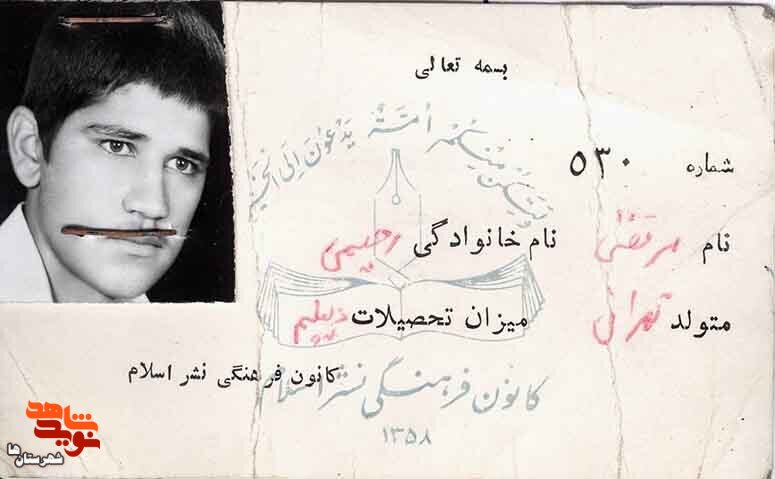 بسمه تعالی
ولتکن منکم امة یدعون الی الخیر
شماره ۵۳۰
نام مرتضی نام خانوادگی رحیمی
متولد تهران میزان تحصیلات دیپلم
کانون فرهنگی نشر اسلام
کانون فرهنگی نشر اسلام
۱۳۵۸
نوید شاهد
شهرستان‌ها